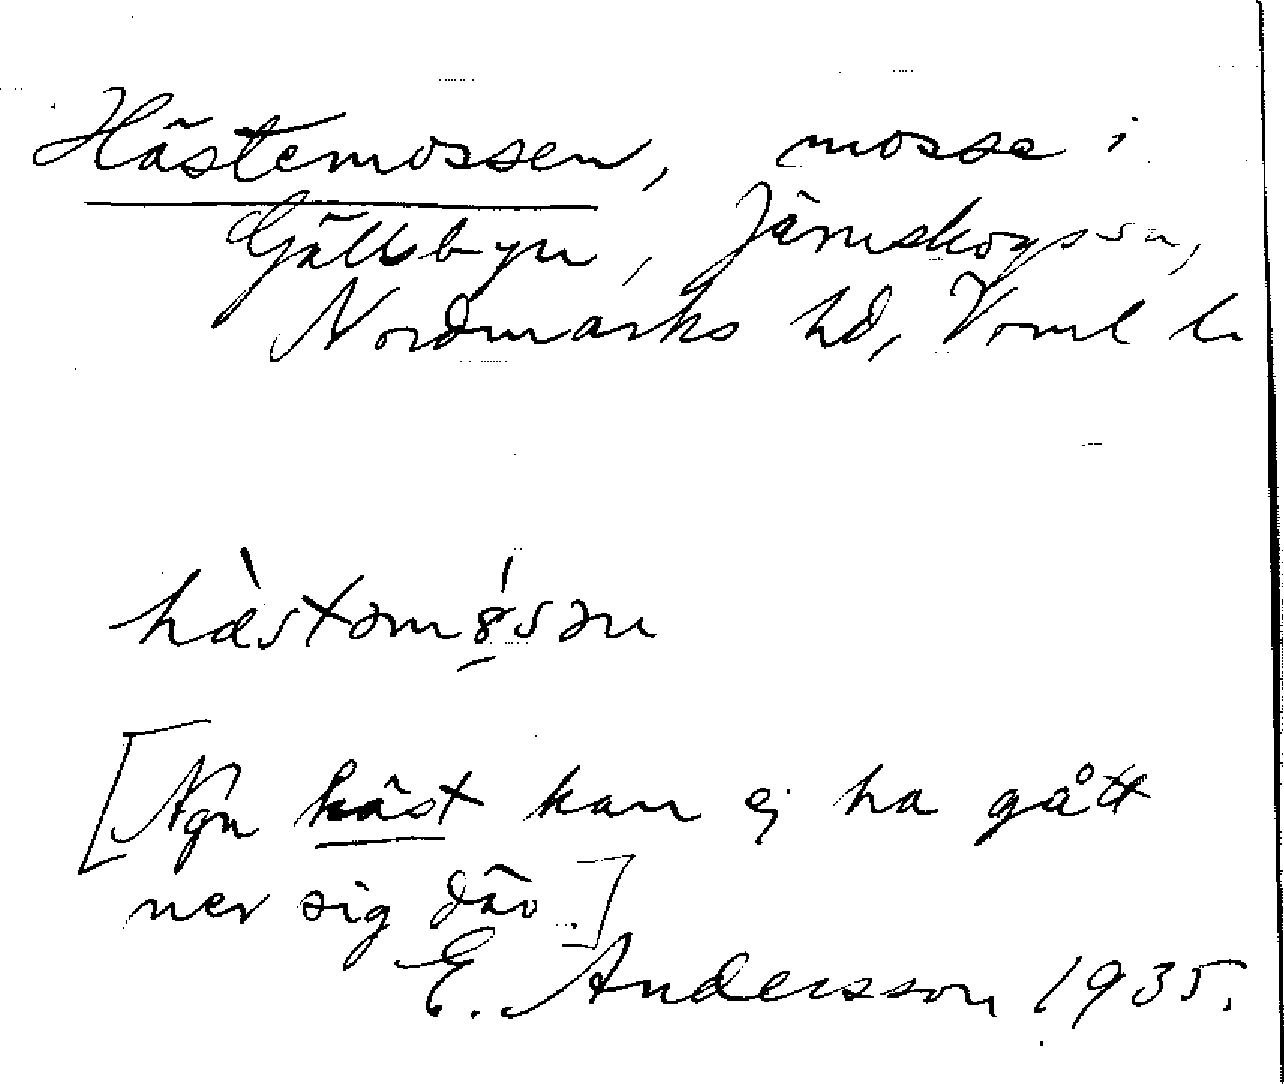 Hästemossen, mosse i
Gällsbyn, Järnskogs sn,
Nordmarks hd, Vrml l.
hæ̀stəmȣ́sən
[Ngn häst kan ej ha gått
ner sig där.]
E. Andersson 1935.